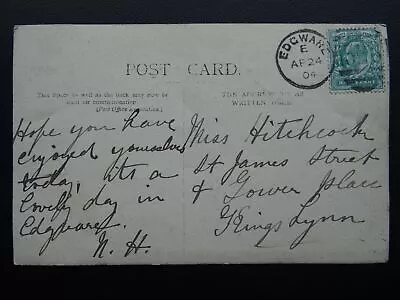 POST CARD.
This Space as well as the back may now be
used for communication
(Post Office Regulation.)
THE ADDRESS TO BE
WRITTEN HERE
EDGWARE
E
AP 24
04
Hope you have
enjoyed yourselves
today, its a
lovely day in
Edgware.
N. H.
Miss Hitchcock
St James Street
& Tower place
Kings Lynn